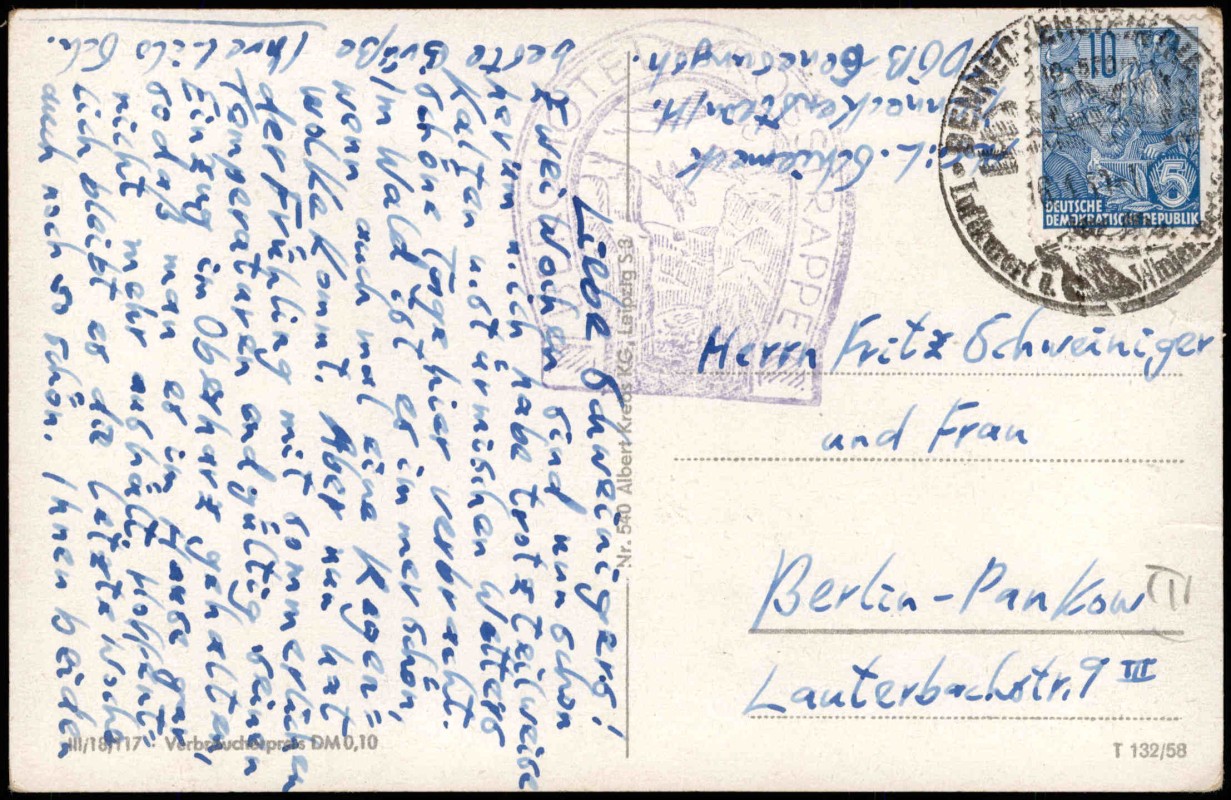 Liebe Schweinigers!
Zwei Wochen sind nun schon
herum u. ich habe trotz teilweise
kalten u. stürmischen Wetters
schöne Tage hier verbracht.
Im Wald ist es immer schön,
wenn auch mal eine Regen=
wolke kommt. Aber nun hat
der Frühling mit sommerlichen
Temperaturen endgültig seinen
Einzug im Oberharz gehalten,
sodaß man es im Hause gar
nicht mehr aushält. Hoffent-
lich bleibt es die letzte Woche
auch noch so schön. Ihnen beiden
beste Grüße
Ihre Lilo Sch.
L.
Benneckenstein/H.
Genesungsh.
HOTEL ROSSTRAPPE
BENNECKENSTEIN
Luftkurort u.
10
5
DEUTSCHE
DEMOKRATISCHE REPUBLIK
Herrn Fritz Schweiniger
und Frau
Berlin-Pankow
Lauterbachstr. 9 III
Nr. 540 Albert Krebs KG., Leipzig S 3
III/18/117 · Verbraucherpreis DM 0,10
T 132/58